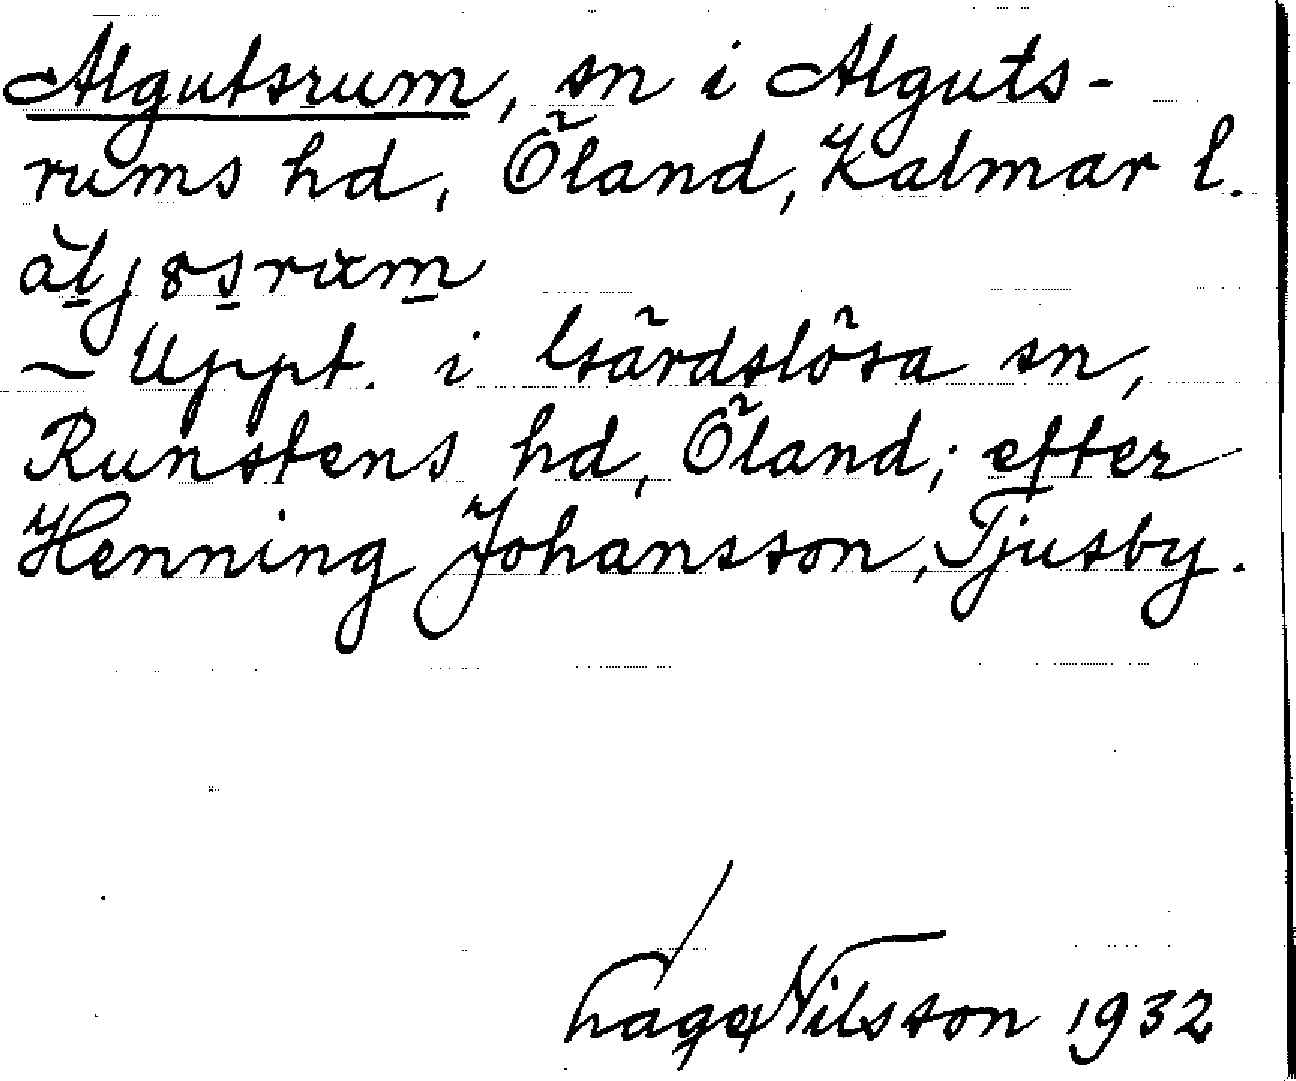 Algutsrum, sn i Alguts-
rums hd, Öland, Kalmar l.
– Uppt. i Gärdslösa sn,
Runstens hd, Öland; efter
Henning Johansson, Tjusby.
Nilsson 1932